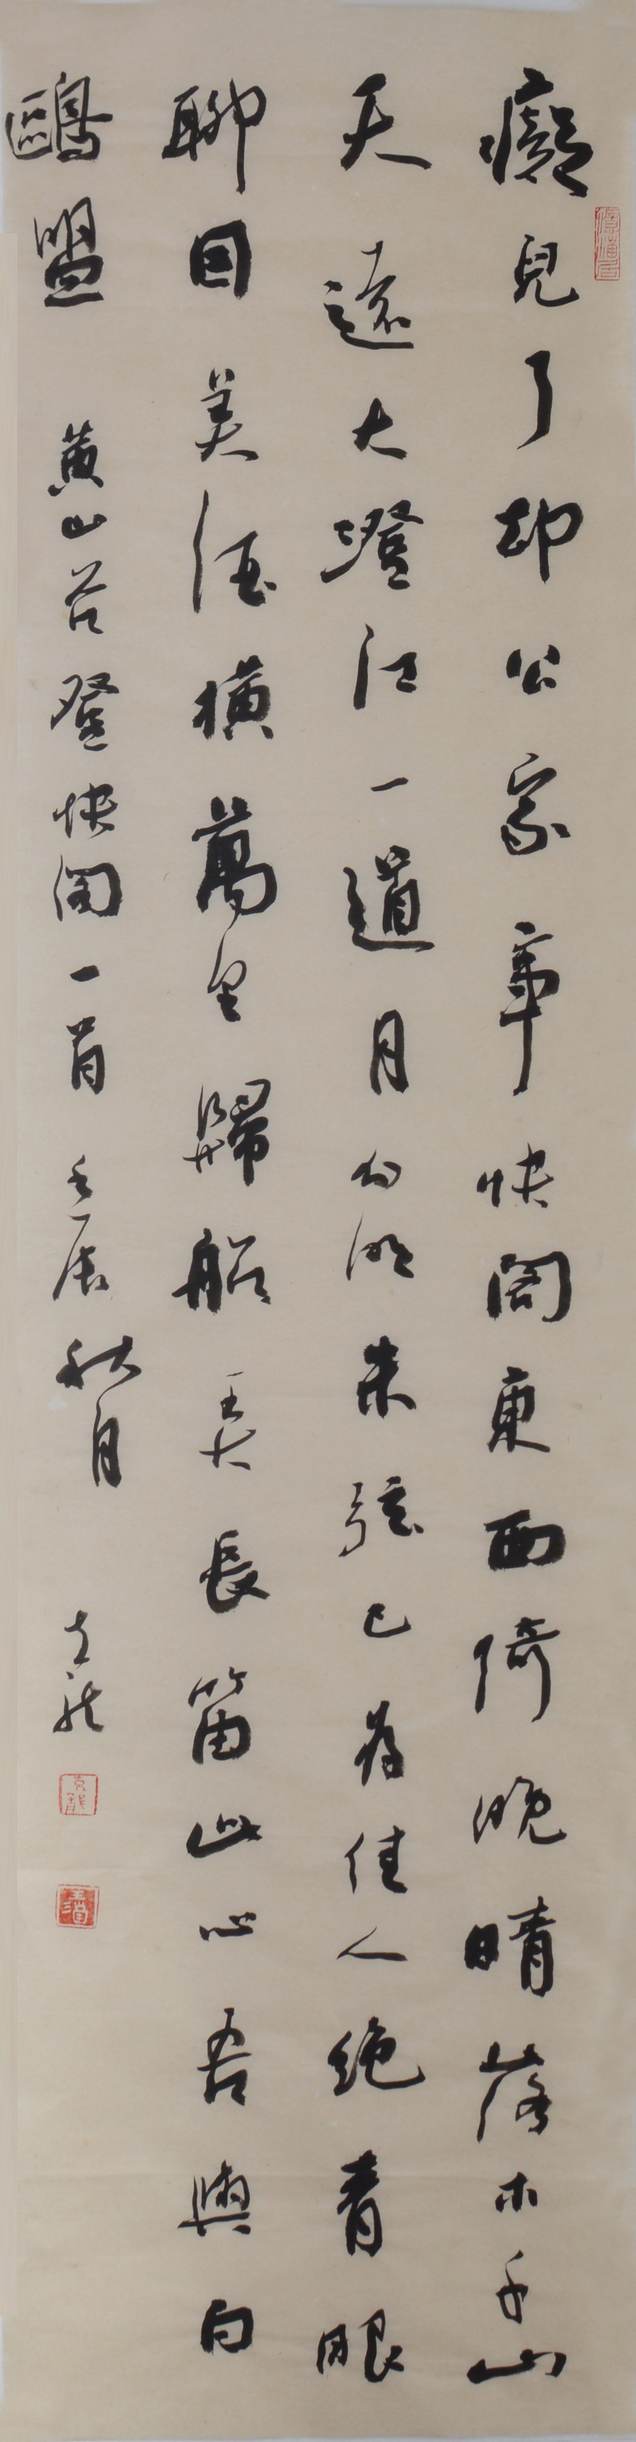 癡兒了却公家事快閣東西倚晚晴落木千山
天遠大澄江一道月分明朱弦已為佳人絶青眼
聊因美酒橫萬里歸船弄長笛此心吾與白
鷗盟 黄山谷登快閣一首 壬辰秋月 克龍
克龍